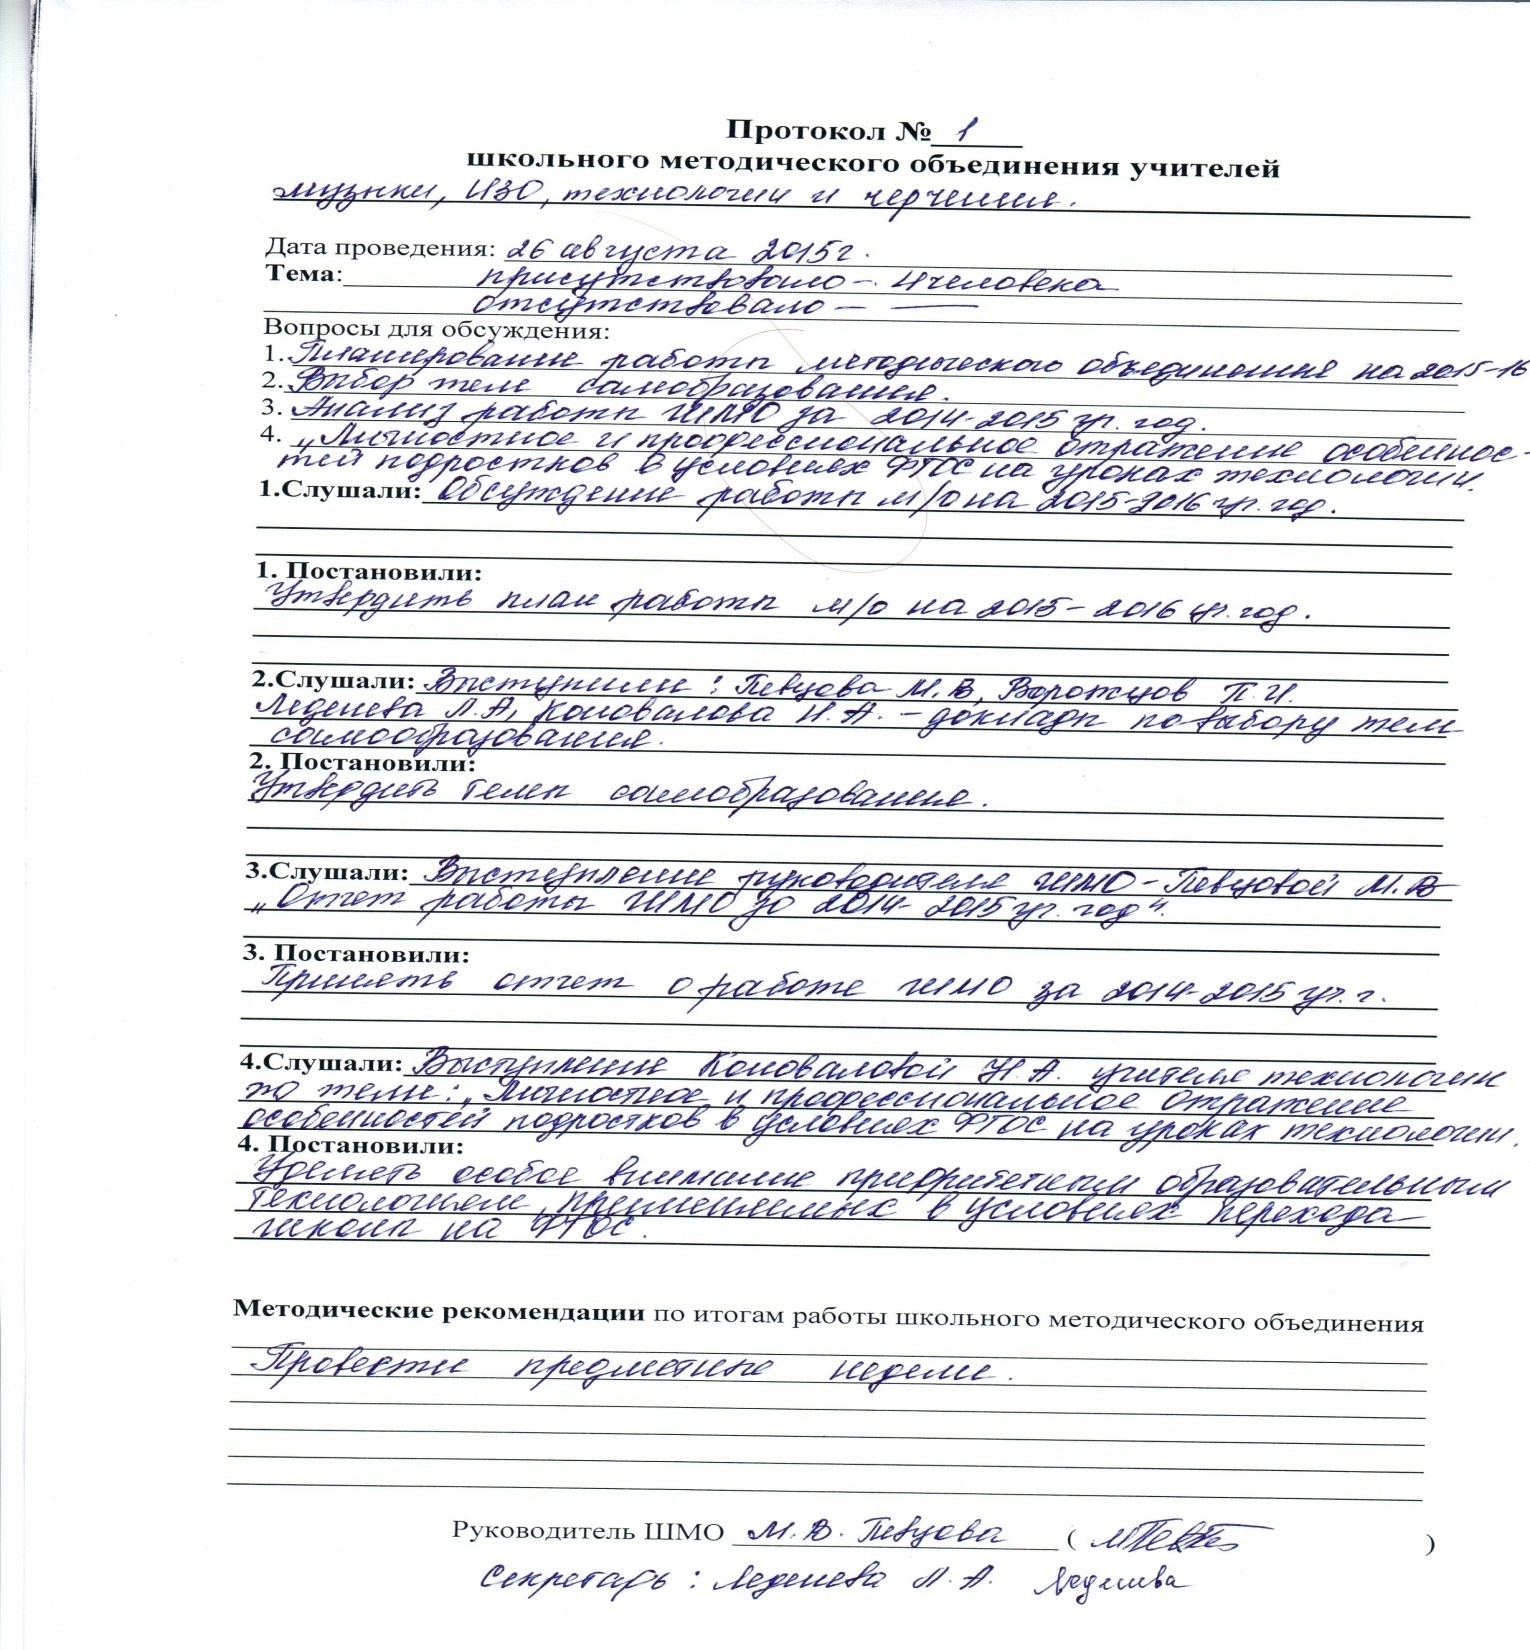 Протокол № 1
школьного методического объединения учителей
музыки, ИЗО, технологии и черчения.
Дата проведения: 26 августа 2015г.
Тема: присутствовало – 4 человека
отсутствовало – —
Вопросы для обсуждения:
1. Планирование работы методического объединения на 2015-16
2. Выбор тем самообразования.
3. Анализ работы ШМО за 2014-2015 уч. год.
4. „Личностное и профессиональное отражение особеннос-
тей подростков в условиях ФГОС на уроках технологии.
1.Слушали: Обсуждение работы м/о на 2015-2016 уч. год.
1. Постановили:
Утвердить план работы м/о на 2015-2016 уч. год.
2.Слушали: Выступили: Певцова М.В, Ворожцов П.И.
Леденева Л.А, Коновалова Н.А. – доклады по выбору тем
самообразования.
2. Постановили:
Утвердить темы самообразования.
3.Слушали: Выступление руководителя ШМО – Певцовой М.В
„Отчет работы ШМО за 2014-2015 уч. год".
3. Постановили:
Принять отчет о работе ШМО за 2014-2015 уч. г.
4.Слушали: Выступление Коноваловой Н.А. учителя технологии
по теме: „Личностное и профессиональное отражение
особенностей подростков в условиях ФГОС на уроках технологии.
4. Постановили:
Уделять особое внимание приоритетным образовательным
технологиям, применяемых в условиях перехода
школы на ФГОС.
Методические рекомендации по итогам работы школьного методического объединения
Провести предметные недели.
Руководитель ШМО М.В. Певцова ( )
Секретарь: Леденева Л.А. Леденева